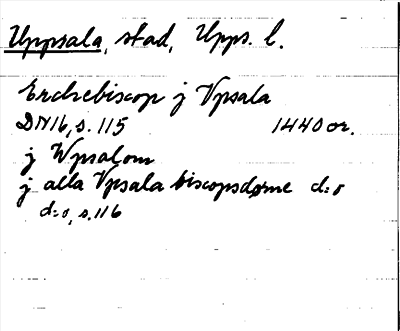 Uppsala, stad, Upps. l.
Erchebiscop j Vpsala
DN16, s. 115 1440 or.
j Wpsalom
j alla Vpsala biscopsdøme d:o
d:o, s. 116